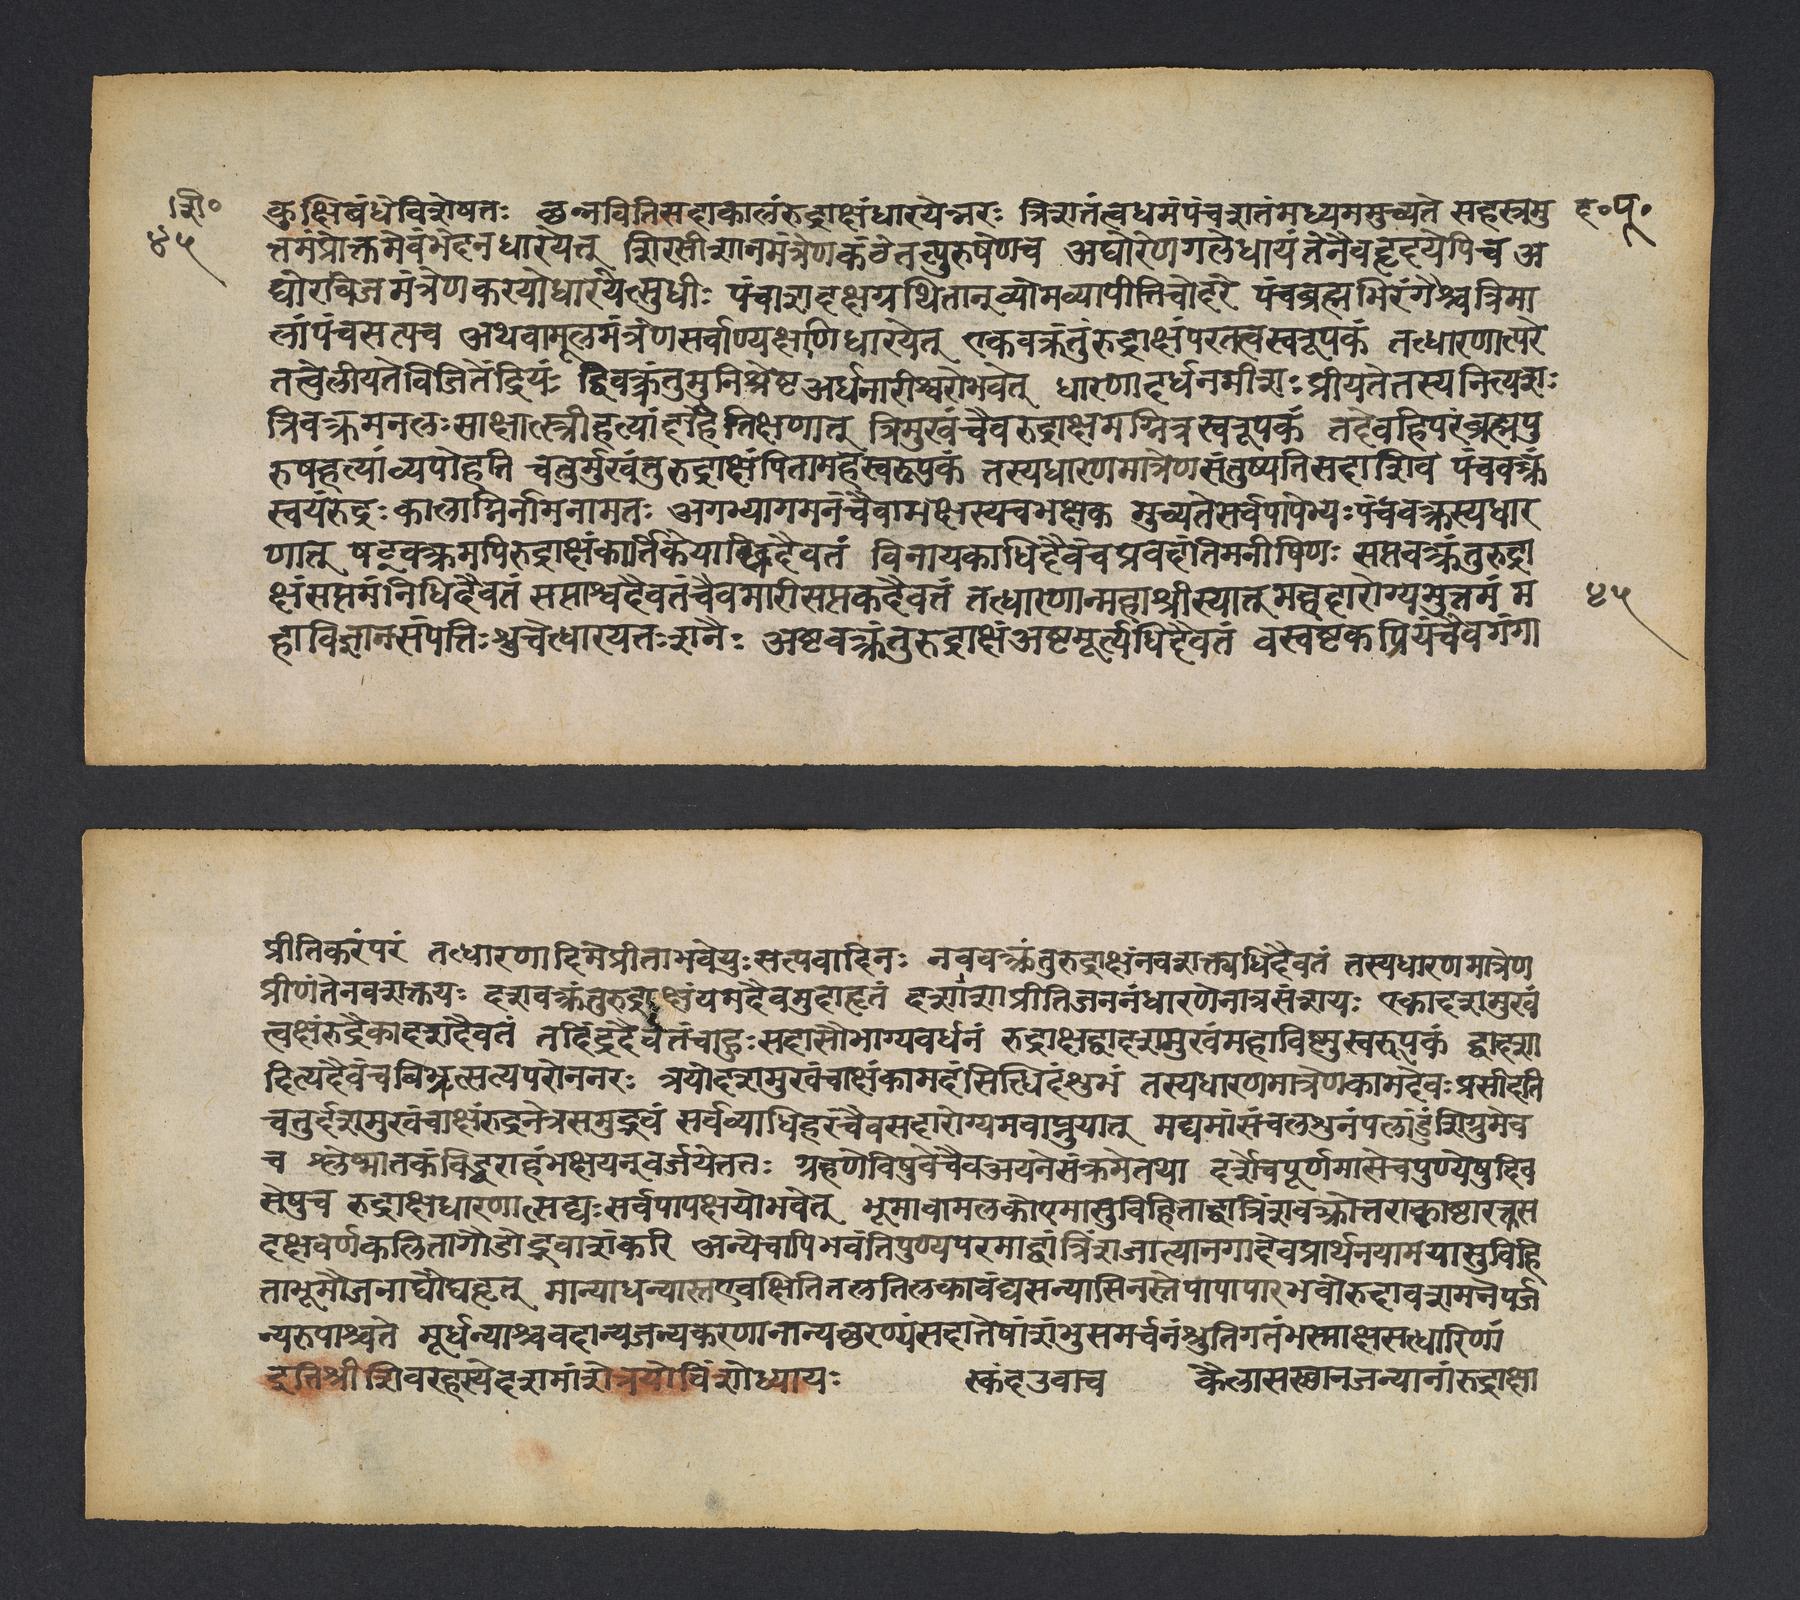 शि॰
४५
कुक्षिबंधेविशेषतः छन्नवितिसदाकालंरुद्राक्षंधारयेन्नरः त्रिशतंत्वधमंपंचशतंमध्यममुच्यते सहस्त्रमु
द॰पू॰
त्तमंप्रोक्तमेवंभेदेनधारयेत् शिरसीशानमंत्रेणकंठेतत्पुरुषेणच अघोरेणगलेधार्यंतेनैवहृदयेपिच अ
घोरबीजमंत्रेणकरयोर्धारयेत्सुधीः पंचाशदक्षग्रथितान्व्योमव्यापीतिचोदरे पंचब्रह्मभिरंगैश्चत्रिमा
लांपंचसप्तच अथवामूलमंत्रेणसर्वाण्यक्षाणिधारयेत् एकवक्त्रंतुरुद्राक्षंपरतत्वस्वरूपकं तत्धारणात्परे
तत्वेलीयतेविजितेंद्रियः द्विवक्त्रंतुमुनिश्रेष्टअर्धनारीश्वरोभवेत् धारणादर्धनमीशः प्रीयतेतस्यनित्यशः
त्रिवक्त्रमनलःसाक्षात्स्त्रीहत्यांदहतिक्षणात् त्रिमुखंचैवरुद्राक्षमग्नित्रस्वरूपकं तदेवहिपरंब्रह्मपु
रुषहत्यांव्यपोहति चतुर्मुखंतुरुद्राक्षंपितामहस्वरूपकं तस्यधारणमात्रेणसंतुष्यतिसदाशिव पंचवक्त्रं
स्वयंरुद्रः कालाग्निर्नामनामतः अगम्यागमनंचैवाभक्षिस्यचभक्षेक मुच्यतेसर्वपापेभ्यःपंचवक्त्रस्यधार
णात् षट्वक्त्रमपिरुद्राक्षंकार्तिकेयाधिदैवतं विनायकाधिदैवंचप्रवदंतिमनीषिणः सप्तवक्त्रंतुरुद्रा
क्षंसप्तमंनिधिदैवतं सप्ताश्वदैवतंचैवमारीसप्तकदैवतं तत्धारणान्महाश्रीस्यात्महदारोग्यमुत्तमं म
४५
हाविज्ञानसंपत्तिःशुचेत्धारयतःशनैः अष्टवक्त्रंतुरुद्राक्षंअष्टमूर्त्यधिदैवतं वस्वष्टकप्रियंचैवगंगा
प्रीतिकरंपरं तत्धारणादिमेप्रीताभवेयुःसत्यवादिनः नववक्त्रंतुरुद्राक्षंनवशक्त्यधिदैवतं तस्यधारणमात्रेण
प्रीणंतेनवशक्तयः दशवक्त्रंतुरुद्राक्षंयमदैवमुदाहृतं दशाशाप्रीतिजननंधारणेनात्रसंशयः एकादशमुखं
त्वक्षंरुद्रैकादशदैवतं तदिंद्रदैवतंचाहुःसदासौभाग्यवर्धनं रुद्राक्षद्वादशमुखंमहाविष्णुस्वरूपकं द्वादशा
दित्यदैवंचबिभ्रत्सत्यपरोननरः त्रयोदशमुखंचाक्षंकामदंसिद्धिदंशुभं तस्यधारणमात्रेणकामदेवःप्रसीदति
चतुर्दशमुखंचाक्षंरुद्रनेत्रसमुद्भवं सर्वव्याधिहरंचैवसदारोग्यमवाप्नुयात् मद्यमांसंचलशुनंपलांडुंशिग्रुमेव
च श्लेष्मातकंविड्वराहंभक्षयन्वर्जयेत्ततः ग्रहणेविषुवेचैवअयनेसंक्रमेतथा दर्शेचपूर्णमासेचपुण्येषुदिव
सेषुच रुद्राक्षधारणात्सद्यःसर्वपापक्षयोभवेत् भूमावामलकोपमासुविहिताद्वात्रिंशवक्त्रोत्तराकाष्ठारत्नस
दृक्षवर्णकलितागौडोद्रुवाशंकरि अन्येचापिभवंतिपुण्यपरमाद्वांत्रिंशजात्यानगादेवप्रार्थनयामयासुविहि
ताभूमौजनाघौघहृत् मान्याधन्यास्तएवक्षितितलतिलकावंद्यसन्यासिनस्तेपापापारभवौरुदावशमनेपर्ज
न्यरुपाश्चते मूर्धन्याश्चवदान्यजन्यकरणानान्यछरण्यंसदातेषांशंभुसमर्चनंश्रुतिगतंभस्माक्षसत्धारिणां
इतिश्रीशिवरहस्येदशमांशेत्रयोविंशोध्यायः स्कंदउवाच कैलासस्छानजन्यानांरुद्राक्षा